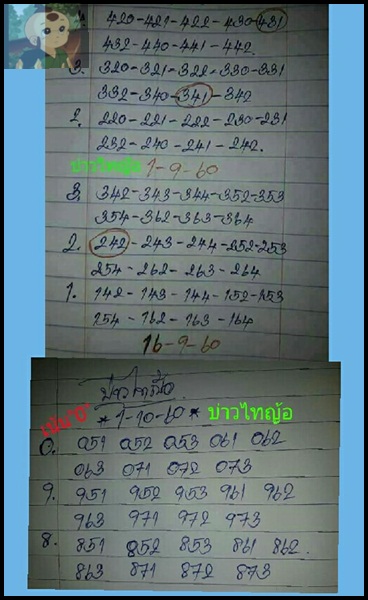 4. 420-421-422-430-431
432-440-441-442.
3. 320-321-322-330-331
332-340-341-342
2. 220-221-222-230-231
232-240-241-242.
บ่าวไทญ้อ 1-9-60
3. 342-343-344-352-353
354-362-363-364
2. 242-243-244-252-253
254-262-263-264
1. 142-143-144-152-153
154-162-163-164
16-9-60
บ่าวไทญ้อ
เน้น"0" *1-10-60* บ่าวไทญ้อ
0. 051 052 053 061 062
063 071 072 073
9. 951 952 953 961 962
963 971 972 973
8. 851 852 853 861 862.
863 871 872 873